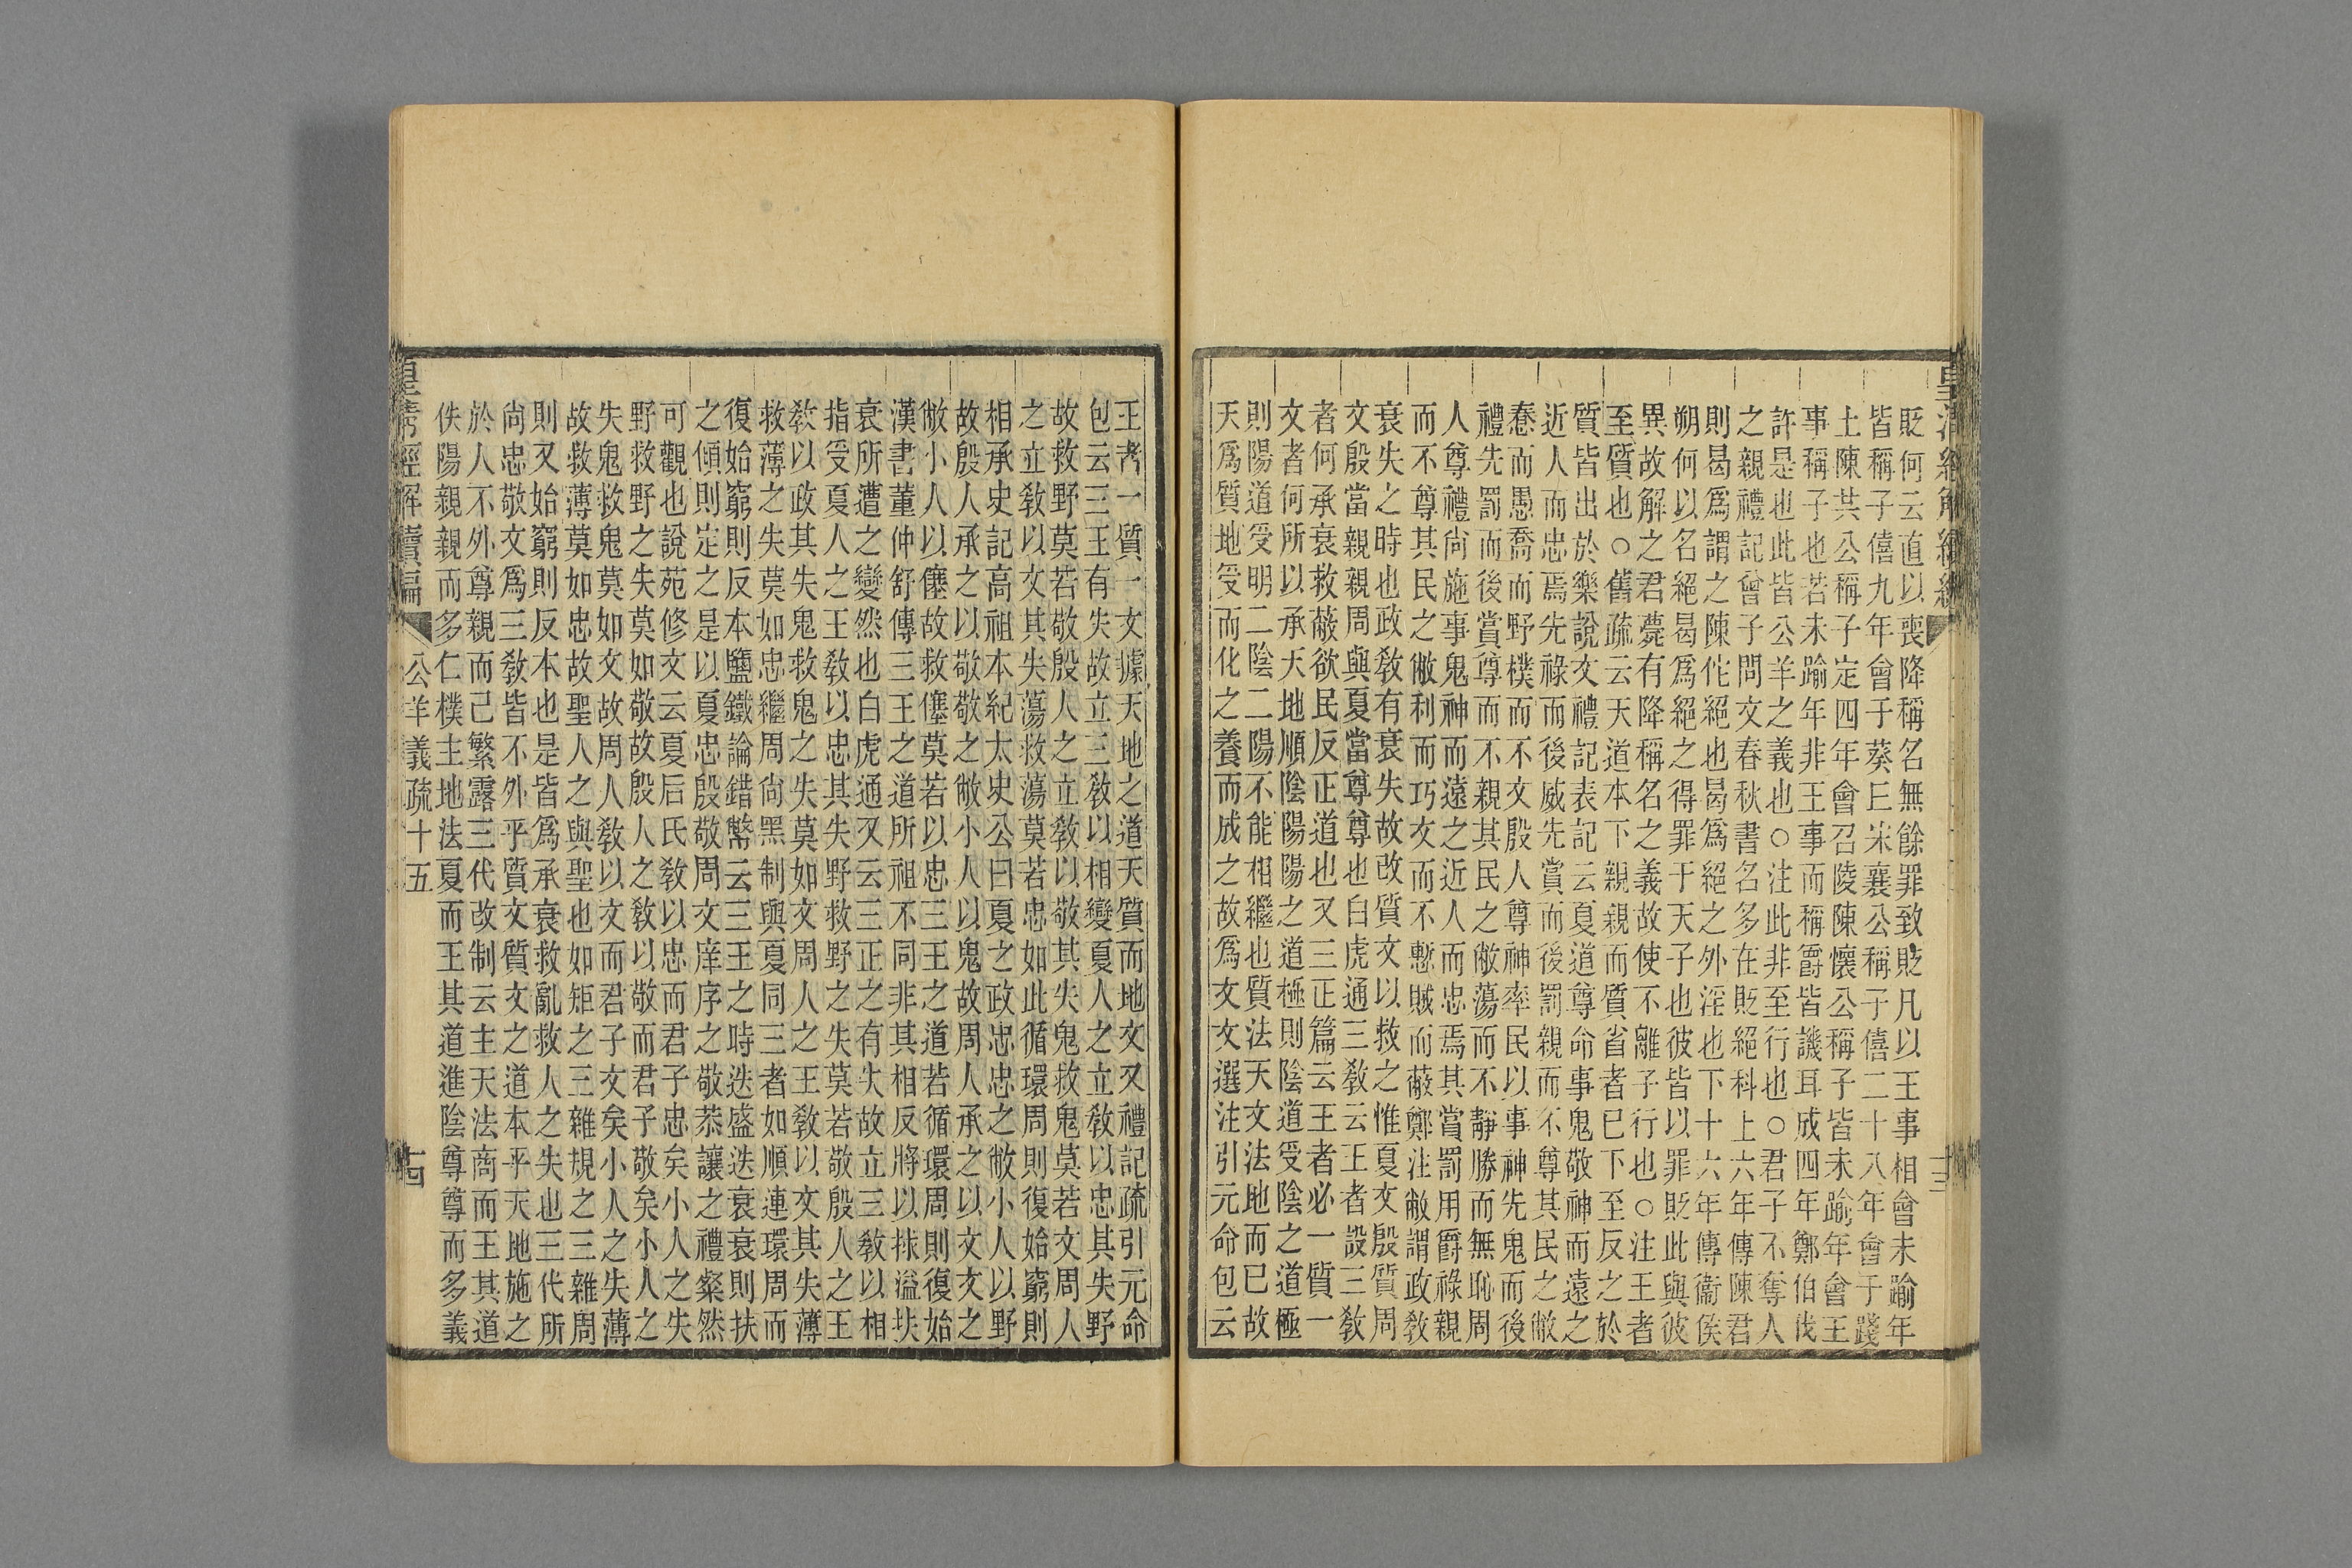 貶何云直以喪降稱名無餘罪致貶凡以王事相會未踰年
皆稱子僖九年會于葵丘宋襄公稱子僖二十八年會于踐
土陳共公稱子定四年會召陵陳懷公稱子皆未踰年會王
事稱子也若未踰年非王事而稱爵皆譏耳成四年鄭伯伐
許是也此皆公羊之義也○注此非至行也○君子不奪人
之親禮記曾子問文春秋書名多在貶絕科上六年傳陳君
則曷爲謂之陳佗絕也曷爲絕之外淫也下十六年傳衞侯
朔何以名絕曷爲絕之得罪于天子也彼皆以罪貶此與彼
異故解之君薨有降稱名之義故使不離子行也○注王者
至質也○舊疏云天道本下親親而質省者已下至反之於
質皆出於樂說文禮記表記云夏道尊命事鬼敬神而遠之
近人而忠焉先祿而後威先賞而後罰親而不尊其民之敝
惷而愚喬而野樸而不文殷人尊神率民以事神先鬼而後
禮先罰而後賞尊而不親其民之敝蕩而不靜勝而無恥周
人尊禮尙施事鬼神而遠之近人而忠焉其賞罰用爵祿親
而不尊其民之敝利而巧文而不慙賊而蔽鄭注敝謂政敎
衰失之時也政敎有衰失故改質文以救之惟夏文殷質周
文殷當親親周與夏當尊尊也白虎通三敎云王者設三敎
者何承衰救蔽欲民反正道也又三正篇云王者必一質一
文者何所以承天地順陰陽陽之道極則陰道受陰之道極
則陽道受明二陰二陽不能相繼也質法天文法地而已故
天爲質地受而化之養而成之故爲文文選注引元命包云
王者一質一文據天地之道天質而地文又禮記疏引元命
包云三王有失故立三敎以相變夏人之立敎以忠其失野
故救野莫若敬殷人之立敎以敬其失鬼救鬼莫若文周人
之立敎以文其失蕩救蕩莫若忠如此循環周則復始窮則
相承史記高祖本紀太史公曰夏之政忠忠之敝小人以野
故殷人承之以敬敬之敝小人以鬼故周人承之以文文之
敝小人以僿故救僿莫若以忠三王之道若循環周則復始
漢書董仲舒傳三王之道所祖不同非其相反將以捄溢扶
衰所遭之變然也白虎通又云三正之有失故立三敎以相
指受夏人之王敎以忠其失野救野之失莫若敬殷人之王
敎以政其失鬼救鬼之失莫如文周人之王敎以文其失薄
救薄之失莫如忠繼周尙黑制與夏同三者如順連環周而
復始窮則反本鹽鐵論錯幣云三王之時迭盛迭衰衰則扶
之傾則定之是以夏忠殷敬周文庠序之敎恭讓之禮粲然
可觀也說苑修文云夏后氏敎以忠而君子忠矣小人之失
野救野之失莫如敬故殷人之敎以敬而君子敬矣小人之
失鬼救鬼莫如文故周人敎以文而君子文矣小人之失薄
故救薄莫如忠故聖人之與聖也如矩之三雜規之三雜周
則又始窮則反本也是皆爲承衰救亂救人之失也三代所
尙忠敬文爲三敎皆不外乎質文質文之道本乎天地施之
於人不外尊親而已繁露三代改制云主天法商而王其道
佚陽親親而多仁樸主地法夏而王其道進陰尊尊而多義
皇清經解續編
公羊義疏十五
十四